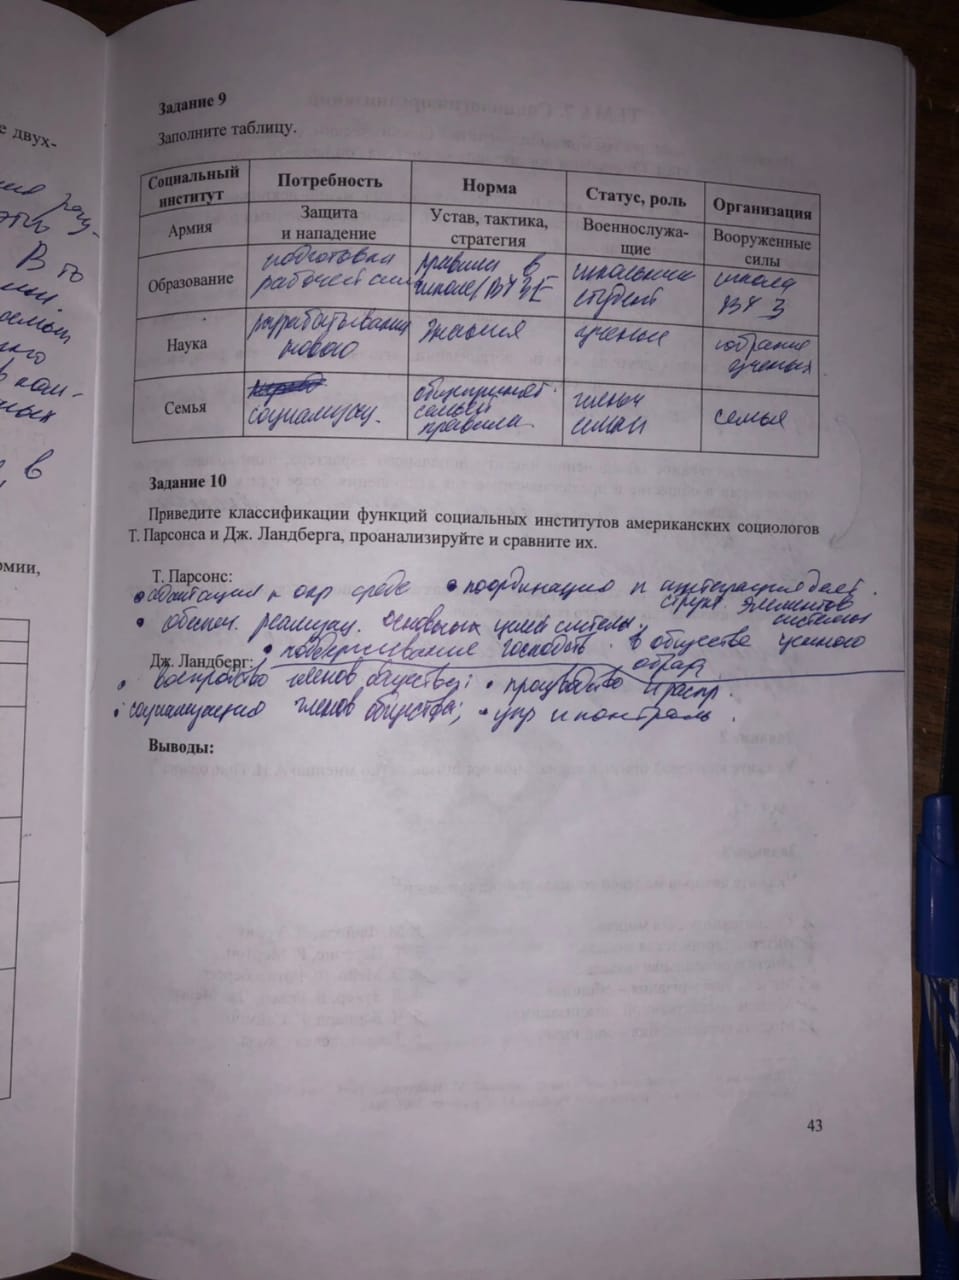 е двух-
Задание 9
Заполните таблицу.
Социальный институт | Потребность | Норма | Статус, роль | Организация
Армия | Защита и нападение | Устав, тактика, стратегия | Военнослужа-щие | Вооруженные силы
Образование | подготовка рабочей силы | правила в школе/ВУЗЕ | школьник студент | школа ВУЗ
Наука | разрабатывания нового | знания | ученые | собрание ученых
Семья | социализац. | общепринят. семьей правила | члены семьи | семья
Задание 10
Приведите классификации функций социальных институтов американских социологов
Т. Парсонса и Дж. Ландберга, проанализируйте и сравните их.
Т. Парсонс:
• адаптация к окр среде • координация и интеграция деят.
структ. элементов
системы
• обеспеч. реализац. основных целей системы.
• поддерживание господств. в обществе ценного
образ.
Дж. Ландберг:
• воспр-во членов общества; • произв-во и распр.
• социализация членов общества; • упр и контроль.
Выводы:
43
В то
в
в
рмии,